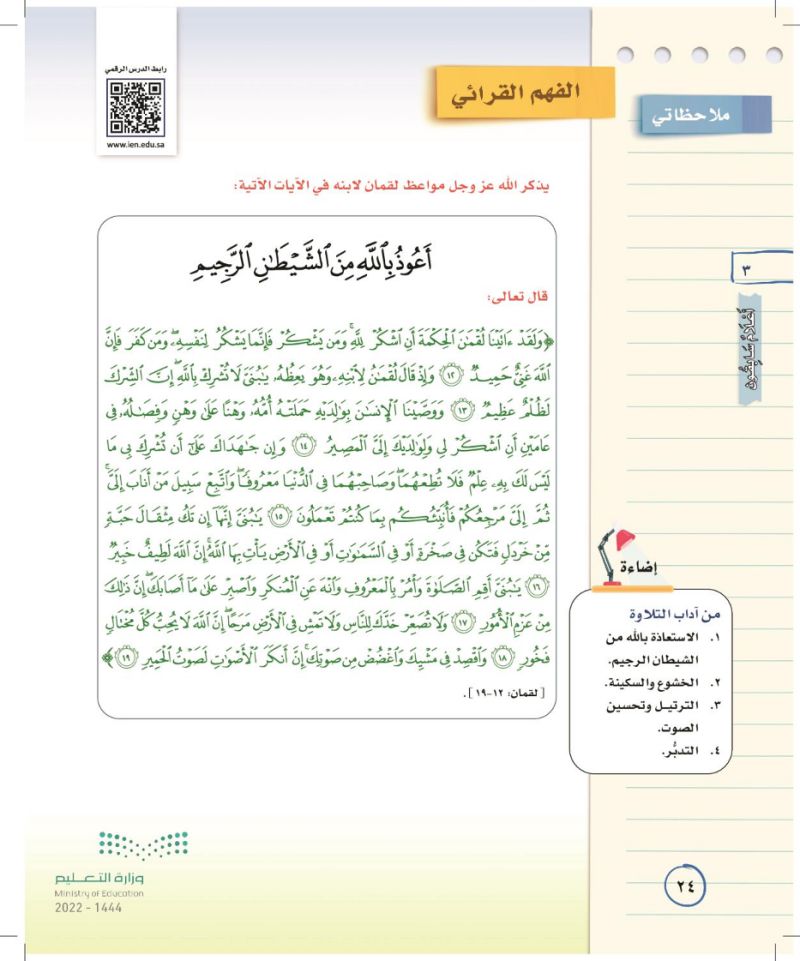 رابط الدرس الرقمي
www.ien.edu.sa
الفهم القرائي
ملاحظاتي
يذكر الله عز وجل مواعظ لقمان لابنه في الآيات الآتية:
أَعُوذُ بِٱللَّهِ مِنَ ٱلشَّيْطَٰنِ ٱلرَّجِيمِ
قال تعالى:
﴿وَلَقَدْ ءَاتَيْنَا لُقْمَٰنَ ٱلْحِكْمَةَ أَنِ ٱشْكُرْ لِلَّهِ ۚ وَمَن يَشْكُرْ فَإِنَّمَا يَشْكُرُ لِنَفْسِهِۦ ۖ وَمَن كَفَرَ فَإِنَّ
ٱللَّهَ غَنِىٌّ حَمِيدٌ ١٢ وَإِذْ قَالَ لُقْمَٰنُ لِٱبْنِهِۦ وَهُوَ يَعِظُهُۥ يَٰبُنَىَّ لَا تُشْرِكْ بِٱللَّهِ ۖ إِنَّ ٱلشِّرْكَ
لَظُلْمٌ عَظِيمٌ ١٣ وَوَصَّيْنَا ٱلْإِنسَٰنَ بِوَٰلِدَيْهِ حَمَلَتْهُ أُمُّهُۥ وَهْنًا عَلَىٰ وَهْنٍ وَفِصَٰلُهُۥ فِى
عَامَيْنِ أَنِ ٱشْكُرْ لِى وَلِوَٰلِدَيْكَ إِلَىَّ ٱلْمَصِيرُ ١٤ وَإِن جَٰهَدَاكَ عَلَىٰٓ أَن تُشْرِكَ بِى مَا
لَيْسَ لَكَ بِهِۦ عِلْمٌ فَلَا تُطِعْهُمَا ۖ وَصَاحِبْهُمَا فِى ٱلدُّنْيَا مَعْرُوفًا ۖ وَٱتَّبِعْ سَبِيلَ مَنْ أَنَابَ إِلَىَّ ۚ
ثُمَّ إِلَىَّ مَرْجِعُكُمْ فَأُنَبِّئُكُم بِمَا كُنتُمْ تَعْمَلُونَ ١٥ يَٰبُنَىَّ إِنَّهَآ إِن تَكُ مِثْقَالَ حَبَّةٍ
مِّنْ خَرْدَلٍ فَتَكُن فِى صَخْرَةٍ أَوْ فِى ٱلسَّمَٰوَٰتِ أَوْ فِى ٱلْأَرْضِ يَأْتِ بِهَا ٱللَّهُ ۚ إِنَّ ٱللَّهَ لَطِيفٌ خَبِيرٌ
١٦ يَٰبُنَىَّ أَقِمِ ٱلصَّلَوٰةَ وَأْمُرْ بِٱلْمَعْرُوفِ وَٱنْهَ عَنِ ٱلْمُنكَرِ وَٱصْبِرْ عَلَىٰ مَآ أَصَابَكَ ۖ إِنَّ ذَٰلِكَ
مِنْ عَزْمِ ٱلْأُمُورِ ١٧ وَلَا تُصَعِّرْ خَدَّكَ لِلنَّاسِ وَلَا تَمْشِ فِى ٱلْأَرْضِ مَرَحًا ۖ إِنَّ ٱللَّهَ لَا يُحِبُّ كُلَّ مُخْتَالٍ
فَخُورٍ ١٨ وَٱقْصِدْ فِى مَشْيِكَ وَٱغْضُضْ مِن صَوْتِكَ ۚ إِنَّ أَنكَرَ ٱلْأَصْوَٰتِ لَصَوْتُ ٱلْحَمِيرِ ١٩﴾
[لقمان: ١٢-١٩].
٣
إضاءة
من آداب التلاوة
١. الاستعاذة بالله من
الشيطان الرجيم.
٢. الخشوع والسكينة.
٣. الترتيل وتحسين
الصوت.
٤. التدبُّر.
وزارة التعليم
Ministry of Education
2022 - 1444
٢٤